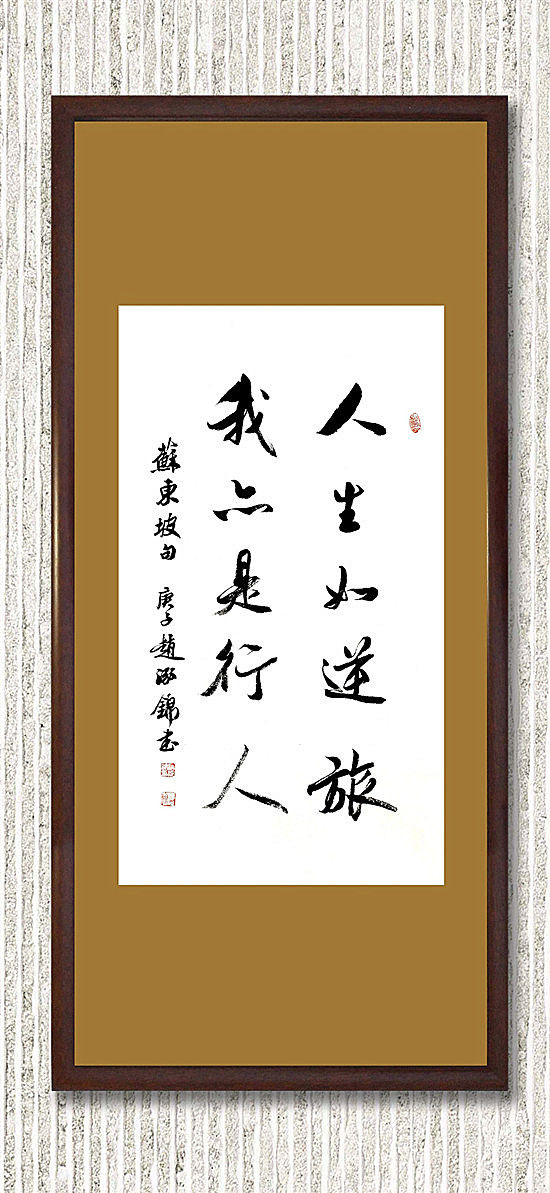 人生如逆旅
我亦是行人
蘇東坡句 庚子趙 錦書